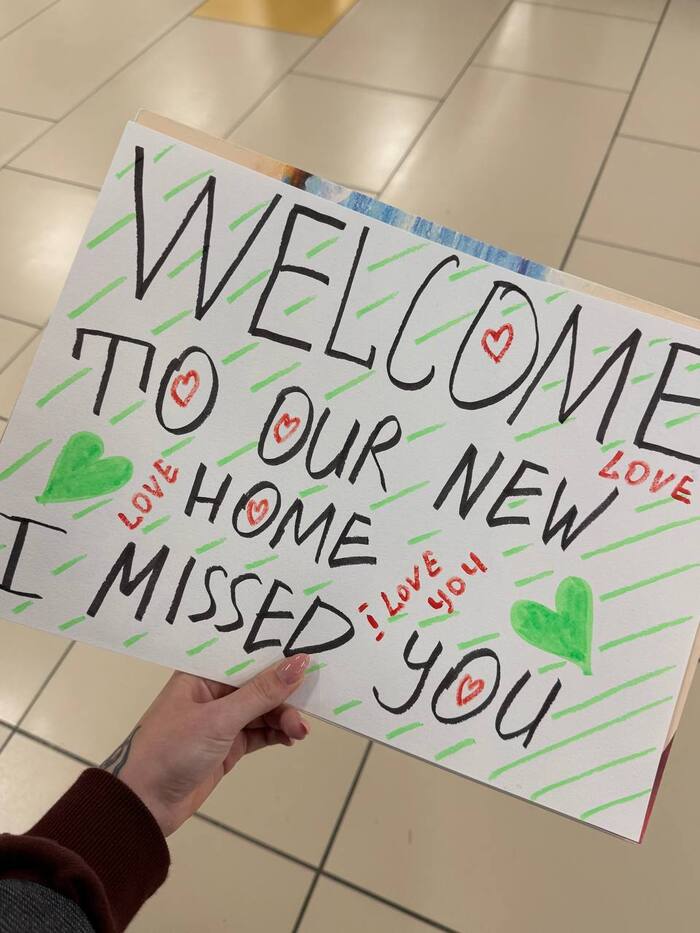 WELCOME
TO OUR NEW
LOVE
LOVE
HOME
I LOVE
YOU
I MISSED YOU